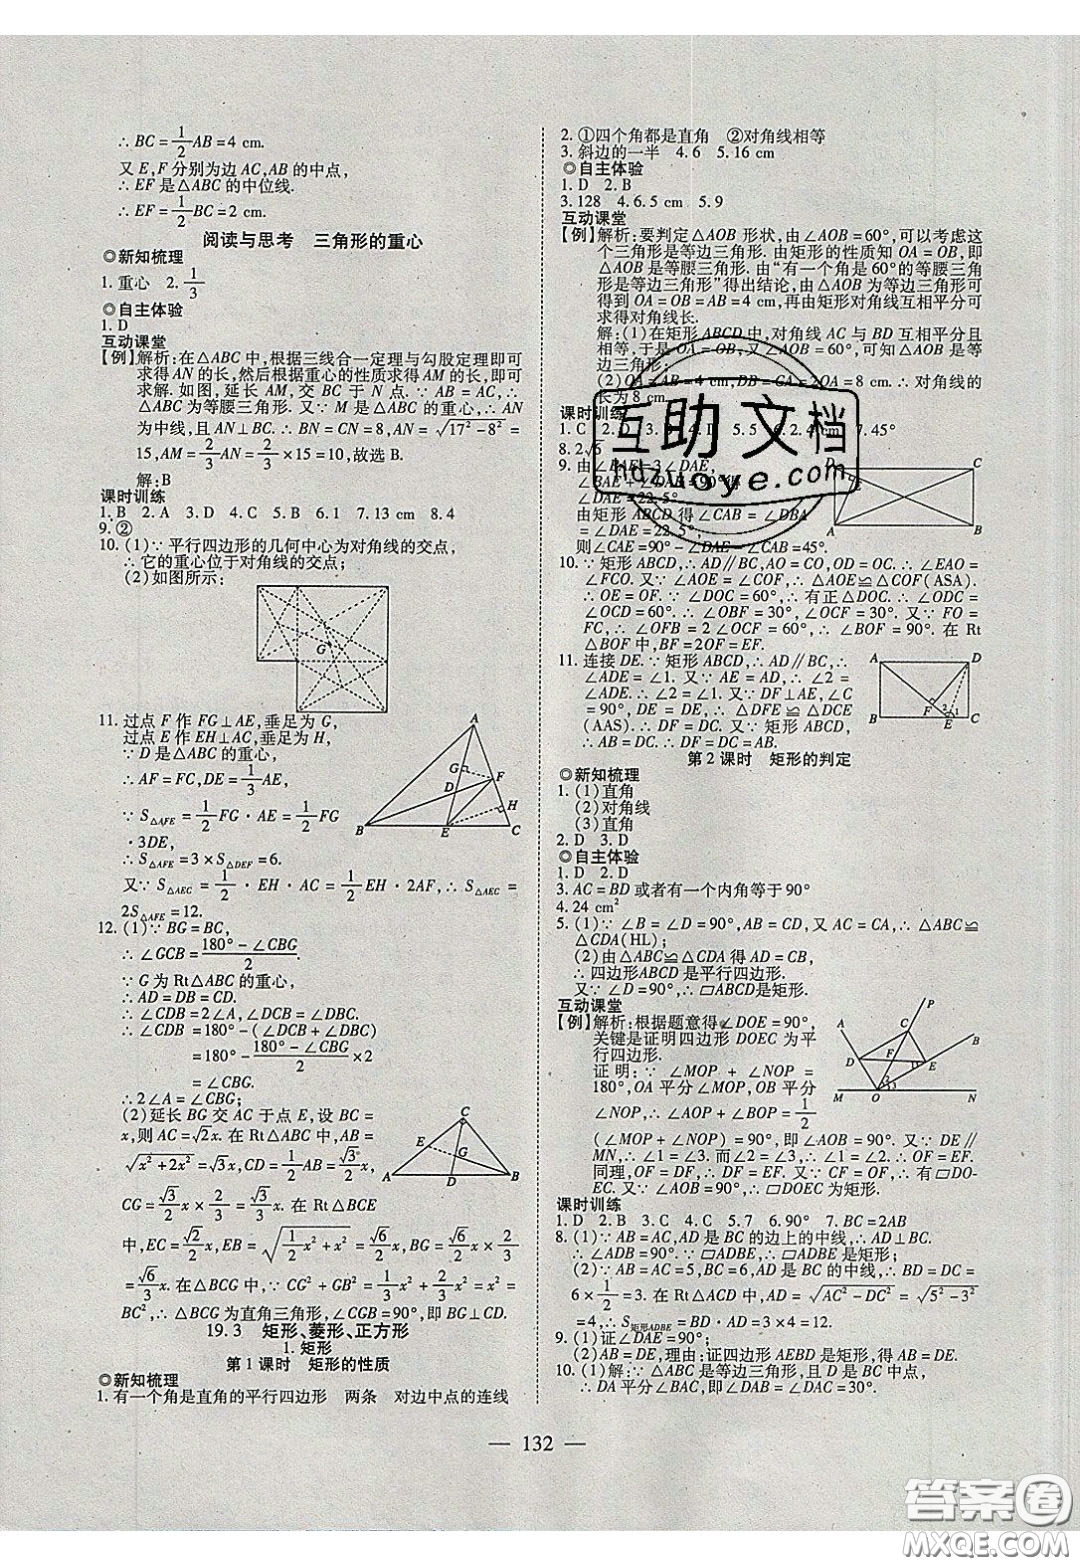 ∴ BC = 1/2 AB = 4 cm.
又 E,F 分别为边 AC,AB 的中点,
∴ EF 是△ABC 的中位线.
∴ EF = 1/2 BC = 2 cm.
阅读与思考 三角形的重心
◎新知梳理
1. 重心 2. 1/3
◎自主体验
1. D
互动课堂
【例】解析:在△ABC 中,根据三线合一定理与勾股定理即可
求得 AN 的长,然后根据重心的性质求得 AM 的长,即可
求解. 如图,延长 AM,交 BC 于 N 点. ∵ AB = AC, ∴
△ABC 为等腰三角形. 又∵ M 是△ABC 的重心,∴ AN
为中线,且 AN⊥BC. ∴ BN = CN = 8,AN = √(17² − 8²) =
15,AM = 2/3 AN = 2/3 × 15 = 10,故选 B.
解:B
课时训练
1. B 2. A 3. D 4. C 5. B 6. 1 7. 13 cm 8. 4
9. ②
10. (1)∵ 平行四边形的几何中心为对角线的交点,
∴ 它的重心位于对角线的交点;
(2)如图所示:
G
11. 过点 F 作 FG⊥AE,垂足为 G,
过点 E 作 EH⊥AC,垂足为 H,
∵ D 是△ABC 的重心,
∴ AF = FC,DE = 1/3 AE,
∵ S△AFE = 1/2 FG · AE = 1/2 FG
· 3DE,
∴ S△AFE = 3 × S△DEF = 6.
又∵ S△AEC = 1/2 · EH · AC = 1/2 EH · 2AF,∴ S△AEC =
2S△AFE = 12.
A
G
D F
H
B E C
12. (1)∵ BG = BC,
∴ ∠GCB = (180° − ∠CBG)/2.
∵ G 为 Rt△ABC 的重心,
∴ AD = DB = CD.
∴ ∠CDB = 2∠A,∠DCB = ∠DBC.
∴ ∠CDB = 180° − (∠DCB + ∠DBC)
= 180° − (180° − ∠CBG)/2 × 2
= ∠CBG.
∴ 2∠A = ∠CBG;
(2)延长 BG 交 AC 于点 E,设 BC =
x,则 AC = √2x. 在 Rt△ABC 中,AB =
√(x² + 2x²) = √3x,CD = 1/2 AB = √3/2 x,
CG = √3/2 x × 2/3 = √3/3 x. 在 Rt△BCE
中,EC = √2/2 x,EB = √(1/2 x² + x²) = √6/2 x,BG = √6/2 x × 2/3
= √6/3 x. ∴ 在△BCG 中,∵ CG² + GB² = 1/3 x² + 6/9 x² = x² =
BC²,∴ △BCG 为直角三角形,∠CGB = 90°,即 CD⊥BG.
C
E
G
A D B
19.3 矩形、菱形、正方形
1. 矩形
第 1 课时 矩形的性质
◎新知梳理
1. 有一个角是直角的平行四边形 两条 对边中点的连线
2. ①四个角都是直角 ②对角线相等
3. 斜边的一半 4. 6 5. 16 cm
◎自主体验
1. D 2. B
3. 128 4. 6.5 cm 5. 9
互动课堂
【例】解析:要判定△AOB 形状,由∠AOB = 60°,可以考虑这
个三角形是等边三角形. 由矩形的性质知 OA = OB,即
△AOB 是等腰三角形. 由“有一个角是 60°的等腰三角形
是等边三角形”得出结论,由△AOB 为等边三角形可
得到 OA = OB = AB = 4 cm,再由矩形对角线互相平分可
求得对角线长.
解:(1)在矩形 ABCD 中,对角线 AC 与 BD 互相平分且
相等,于是 OA = OB. 又∠AOB = 60°,可知△AOB 是等
边三角形;
(2)OA = AB = 4 cm,DB = CA = 2OA = 8 cm. ∴ 对角线的
长为 8 cm.
课时训练
1. C 2. D 3. B 4. D 5. 5 6. 2.4 cm 7. 45°
8. 2√5
9. 由∠BAE = 3∠DAE,
∠BAE + ∠DAE = 90°得
∠DAE = 22.5°.
由矩形 ABCD 得∠CAB = ∠DBA
= ∠DAE = 22.5°,
则∠CAE = 90° − ∠DAE − ∠CAB = 45°.
D C
A B
10. ∵ 矩形 ABCD,∴ AD∥BC,AO = CO,OD = OC. ∴ ∠EAO =
∠FCO. 又∵ ∠AOE = ∠COF,∴ △AOE≌△COF(ASA).
∴ OE = OF. ∵ ∠DOC = 60°,∴ 有正△DOC. ∴ ∠ODC =
∠OCD = 60°. ∴ ∠OBF = 30°,∠OCF = 30°. 又∵ FO =
FC,∴ ∠OFB = 2∠OCF = 60°,∴ ∠BOF = 90°. 在 Rt
△BOF 中,BF = 2OF = EF.
11. 连接 DE. ∵ 矩形 ABCD,∴ AD∥BC,∴
∠ADE = ∠1. 又∵ AE = AD,∴ ∠2 =
∠ADE. ∴ ∠1 = ∠2. 又∵ DF⊥AE,∠C =
90°,DE = DE,∴ △DFE≌△DCE
(AAS). ∴ DF = DC. 又∵ 矩形 ABCD,
∴ AB = DC. ∴ DF = DC = AB.
A D
F 2 1
B E C
第 2 课时 矩形的判定
◎新知梳理
1. (1)直角
(2)对角线
(3)直角
2. D 3. D
◎自主体验
1. D 2. D
3. AC = BD 或者有一个内角等于 90°
4. 24 cm²
5. (1)∵ ∠B = ∠D = 90°,AB = CD,又 AC = CA,∴ △ABC≌
△CDA(HL);
(2)由△ABC≌△CDA 得 AD = CB,
∴ 四边形ABCD 是平行四边形.
又∵ ∠D = 90°,∴ ▱ABCD是矩形.
互动课堂
【例】解析:根据题意得∠DOE = 90°,
关键是证明四边形 DOEC 为平
行四边形.
证明:∵ ∠MOP + ∠NOP =
180°,OA 平分∠MOP,OB 平分
∠NOP,∴ ∠AOP + ∠BOP = 1/2
(∠MOP + ∠NOP) = 90°,即∠AOB = 90°. 又∵ DE∥
MN,∴ ∠1 = ∠3. 而∠2 = ∠3,∴ ∠1 = ∠2,∴ OF = EF.
同理,OF = DF,∴ DF = EF. 又∵ CF = OF,∴ 有▱DO-
EC. 又∵ ∠AOB = 90°,∴ ▱DOEC 为矩形.
P
A C B
D F E
M O N
课时训练
1. D 2. B 3. C 4. C 5. 7 6. 90° 7. BC = 2AB
8. (1)∵ AB = AC,AD 是 BC 的边上的中线,∴ AD⊥BC.
∴ ∠ADB = 90°. ∵ ▱ADBE,∴ ▱ADBE 是矩形;
(2)∵ AB = AC = 5,BC = 6,AD 是 BC 的中线,∴ BD = DC =
6 × 1/2 = 3. 在 Rt△ACD 中,AD = √(AC² − DC²) = √(5² − 3²)
= 4,∴ S矩形ADBE = BD · AD = 3 × 4 = 12.
9. (1)证∠DAE = 90°;
(2)AB = DE,理由:证四边形 AEBD 是矩形.
10. (1)解:∵ △ABC 是等边三角形,且 D 是 BC 中点,
∴ DA 平分∠BAC,即∠DAB = ∠DAC = 30°.
— 132 —
互助文档
hdzuoye.com
答案圈
MXQE.COM